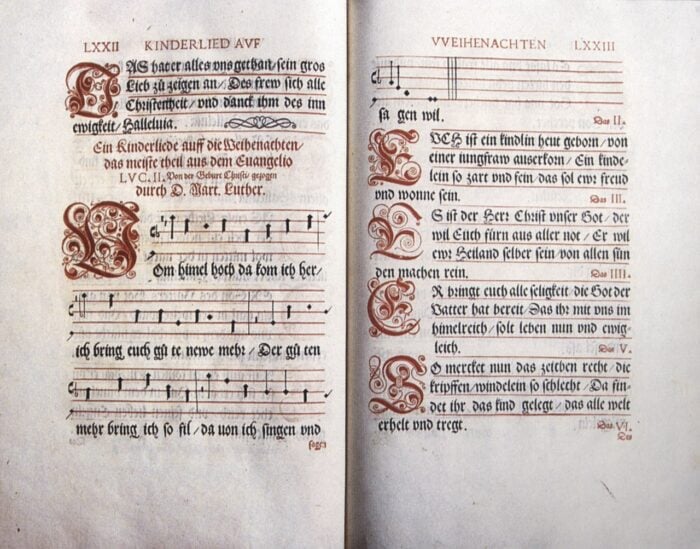 LXXII KINDERLIED AVF
DAS hat er alles vns gethan/sein gros
Lieb zů zeigen an/Des frew sich alle
Christenheit/vnd danck ihm des inn
ewigkeit/Halleluia.
Ein Kinderliede auff die Weihenachten/
das meiste theil aus dem Euangelio
LVC.II. Von der Geburt Christi/gezogen
durch D. Mart. Luther.
VOm himel hoch da kom ich her/
ich bring euch gů te newe mehr/Der gů ten
mehr bring ich so fil/da uon ich singen vnd
sagen
VVEIHENACHTEN LXXIII
sa gen wil.
Das II.
EVCH ist ein kindlin heut geborn/von
einer iungfraw auserkorn/Ein kinde-
lein so zart vnd fein/das sol ewr freud
vnd wonne sein.
Das III.
ES ist der Herr Christ vnser Got/der
wil Euch fürn aus aller not/Er wil
ewr Heiland selber sein/von allen sün
den machen rein.
Das IIII.
ER bringt euch alle seligkeit/die Got der
Vatter hat bereit/Das ihr mit vns im
himelreich/solt leben nun vnd ewig-
leich.
Das V.
SO mercket nun das zeichen recht/die
kripffen/windelein so schlecht/Da fin-
det ihr das kind gelegt/das alle welt
erhelt vnd tregt.
Das VI.
Das